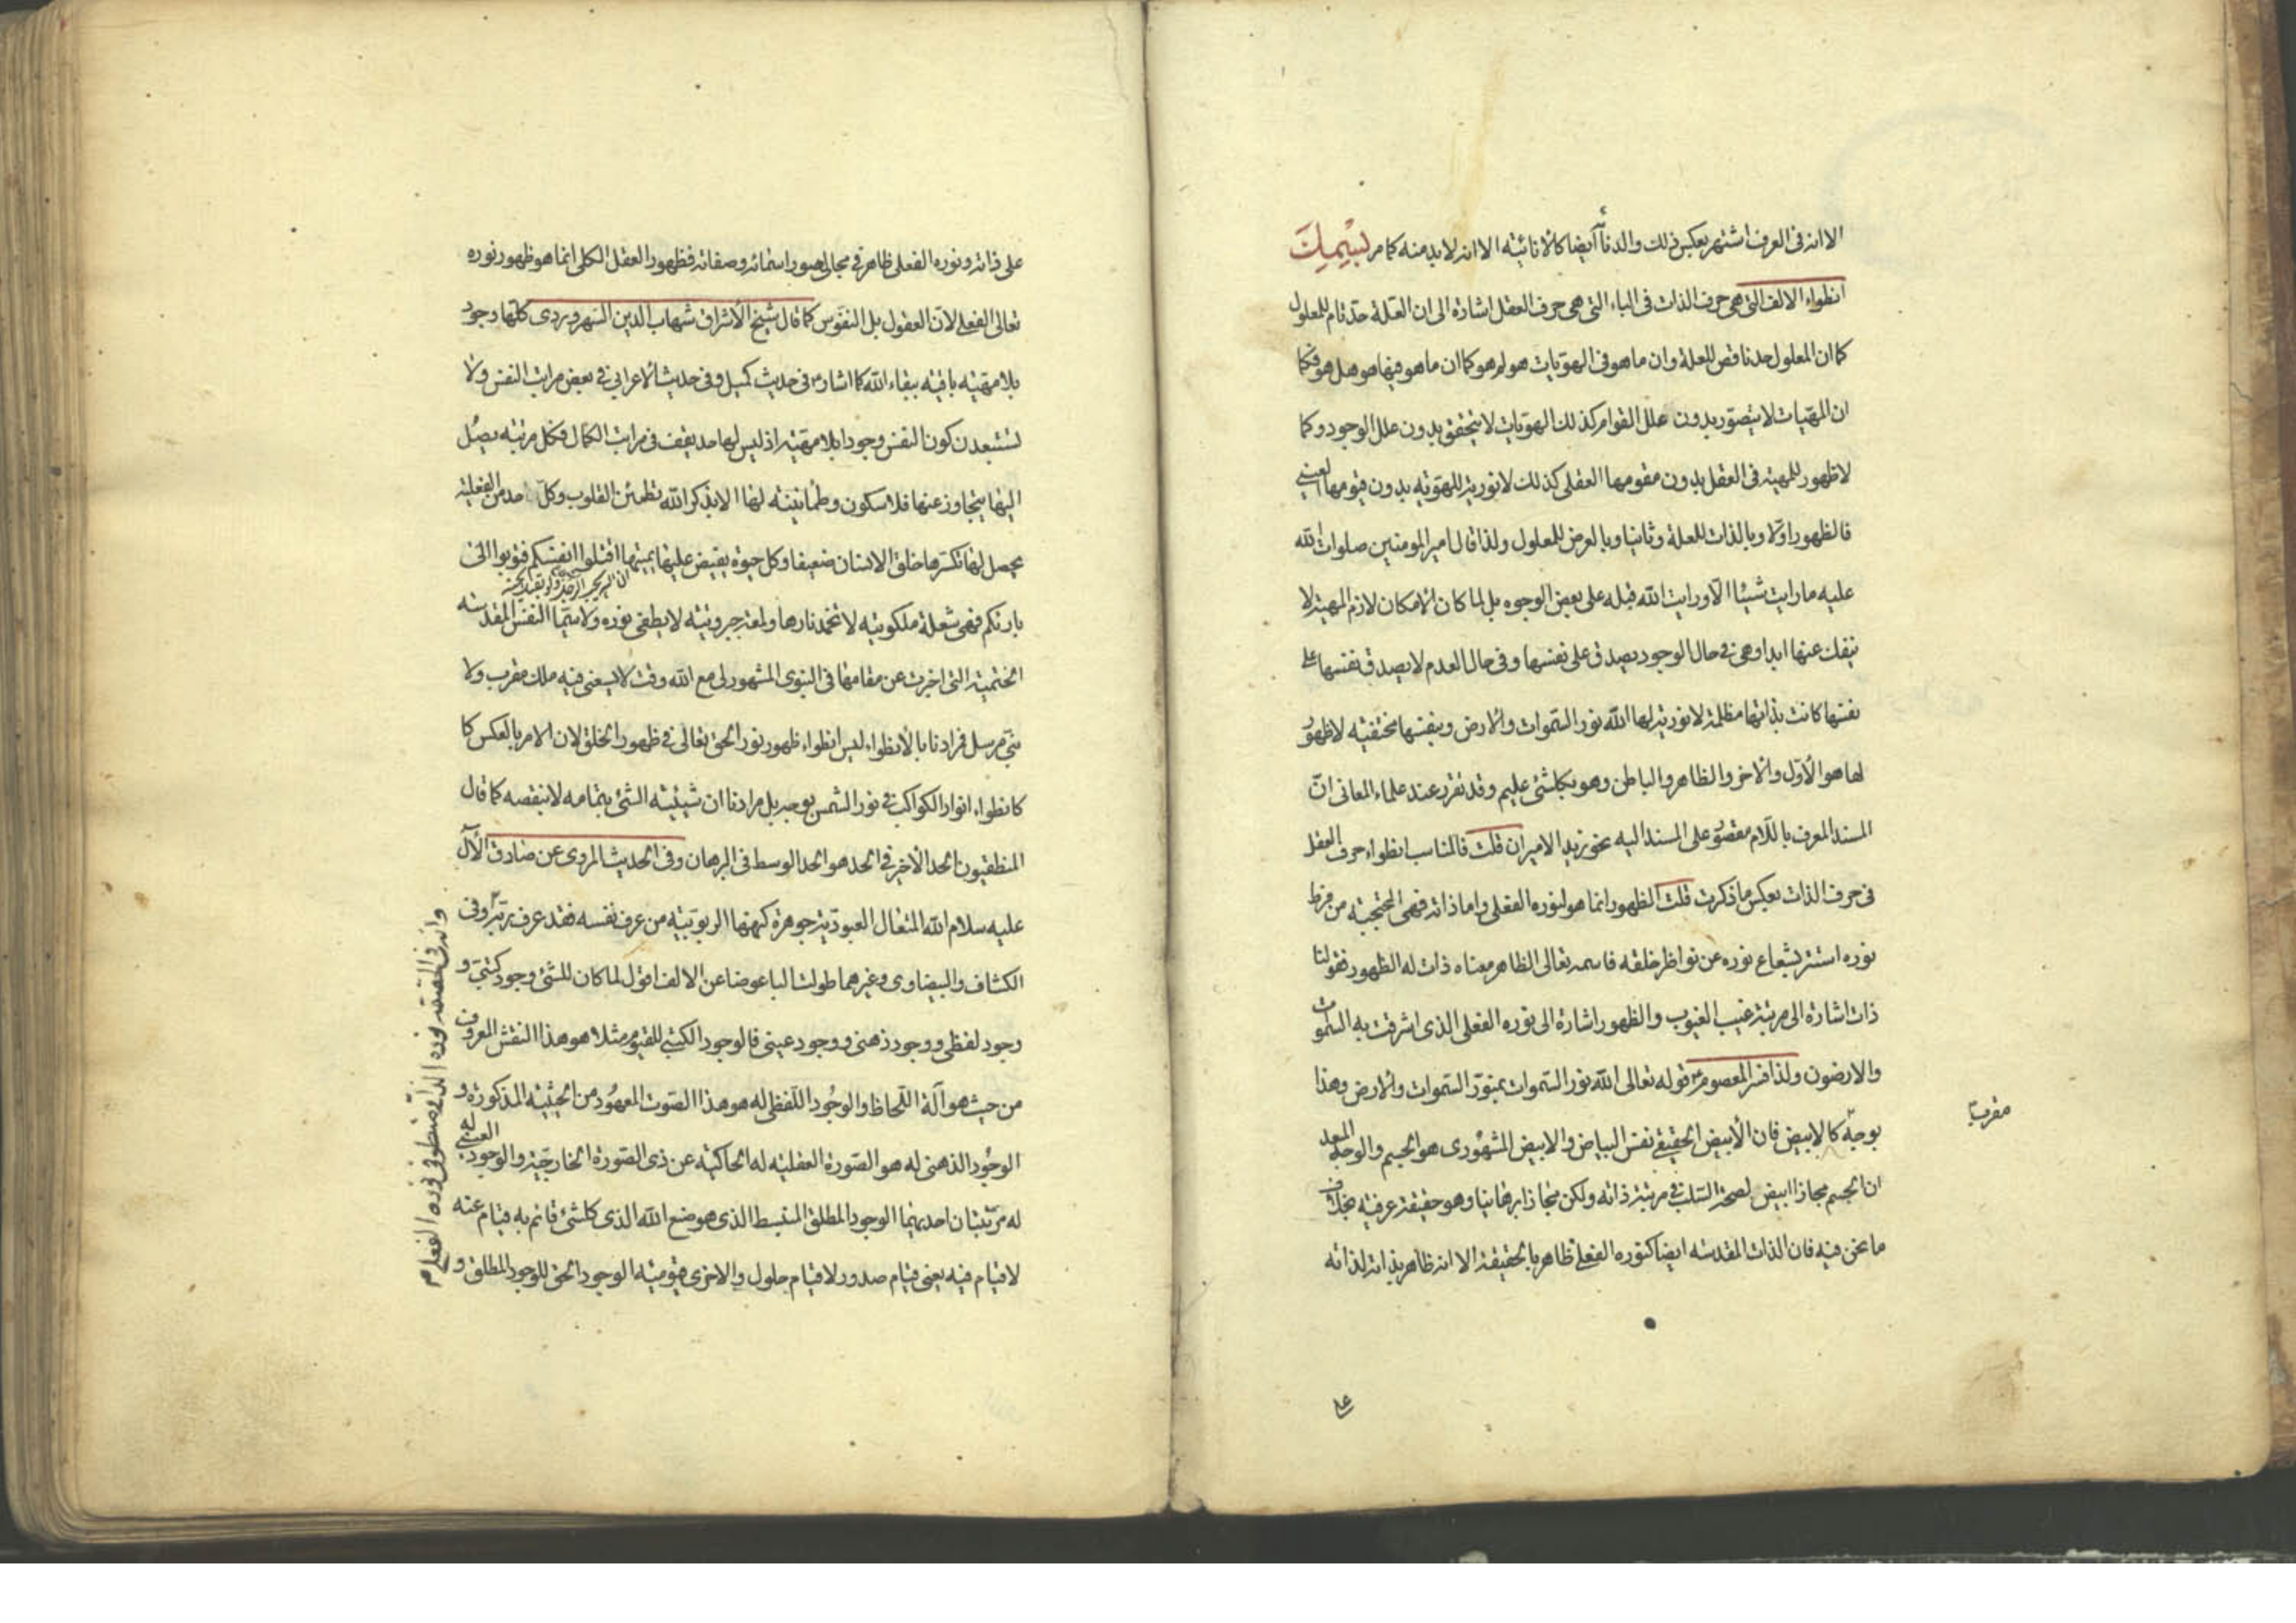 الا انه فى العرف اشتهر بعكس ذلك والدنائة ايضا كالانائية الا انه لابد منه كما مر بِسْمِكَ
انطواء الالف التى هى حرف الذات فى الباء التى هى حرف العقل اشارة الى ان العلة حد تام للمعلول
كما ان المعلول حد ناقص للعلة وان ما هو فى الهويات هو لم هو كما ان ما هو فيها هو هل هو فكما
ان المهيات لا يتصور بدون علل القوام كذلك الهويات لا يتحقق بدون علل الوجود وكما
لا ظهور للمهية فى العقل بدون مقومها العقلى كذلك لا نورية للهوية بدون قيومها العينى
فالظهور اولا وبالذات للعلة وثانيا وبالعرض للمعلول ولذا قال امير المومنين صلوات الله
عليه ما رايت شيئا الا ورايت الله قبله على بعض الوجوه بل لما كان الامكان لازم المهية لا
ينفك عنها ابدا وهى فى حال الوجود يصدق على نفسها وفى حال العدم لا يصدق نفسها على
نفسها كانت بذاتها مظلمة لا نورية لها الله نور السموات والارض وبنفسها مختفية لا ظهور
لها هو الاول والاخر والظاهر والباطن وهو بكلشئ عليم وقد تقرر عند علماء المعانى ان
المسند المعرف باللام مقصور على المسند اليه نحو زيد الامير ان قلت فالمناسب انطواء حرف العقل
فى حرف الذات بعكس ما ذكرت قلت الظهور انما هو لنوره الفعلى واما ذاته فهى المحتجبة من فرط
نوره استتر بشعاع نوره عن نواظر خلقه فاسمه تعالى الظاهر معناه ذات له الظهور فقولنا
ذات اشارة الى مرتبة غيب الغيوب والظهور اشارة الى نوره الفعلى الذى اشرقت به السموات
والارضون ولذا فسر المعصوم قوله تعالى الله نور السموات بمنور السموات والارض وهذا
بوجه كالابيض فان الابيض الحقيقى نفس البياض والابيض المشهورى هو الجسم والوجه المعد
مقربا
ان الجسم مجازا ابيض لصحة السلب فى مرتبة ذاته ولكن مجازا برهانيا وهو حقيقة عرفية بخلاف
ما نحن فيه فان الذات المقدسه ايضا كنوره الفعلى ظاهر بالحقيقة الا انه ظاهر بذاته لذاته
على
على ذاته ونوره الفعلى ظاهر فى مجالى اسمائه وصفاته فظهور العقل الكلى انما هو ظهور نوره
تعالى الفعلى لان العقول بل النفوس كما قال شيخ الاشراق شهاب الدين السهروردى كلها وجود
بلا مهية باقية ببقاء الله كما اشار فى حديث كميل وفى حديث الاعرابى فى بعض مراتب النفس ولا
تستبعدن كون النفس وجودا بلا مهية اذ ليس لها حد يقف فى مراتب الكمال فكل مرتبة يصل
اليها يتجاوز عنها فلا سكون وطمانينة لها الا بذكر الله تطمئن القلوب وكل حد من الفعلية
يحصل لها تكسرها خلق الانسان ضعيفا وكل حيوة يفيض عليها يميتها اقتلوا انفسكم فتوبوا الى
بارئكم فهى شعلة ملكوتية لا تخمد نارها ولمعة جبروتية لا يطفى نوره ولا سيما النفس المقدسة
الختمية التى اخبرت عن مقامها فى النبوى المشهور لى مع الله وقت لا يسعنى فيه ملك مقرب ولا
نبى مرسل فمرادنا بالانطواء ليس انطواء ظهور نور الحق تعالى فى ظهور الخلق لان الامر بالعكس كا
كانطواء انوار الكواكب فى نور الشمس بوجه بل مرادنا ان شيئية الشئ بتمامه لا بنقصه كما قال
المنطقيون الحد الاخير فى الحد هو الحد الوسط فى البرهان وفى الحديث المروى عن صادق الآل
عليه سلام الله المتعال العبودية جوهرة كنهها الربوبية من عرف نفسه فقد عرف ربه وفى
الكشاف والبيضاوى وغيرهما طولت الباء عوضا عن الالف اقول لما كان للشئ وجود كتبى و
وجود لفظى ووجود ذهنى ووجود عينى فالوجود الكتبى للقيوم مثلا هو هذا النقش المعروف
من حيث هو آلة اللحاظ والوجود اللفظى له هو هذا الصوت المعهود من الحيثية المذكورة و
الوجود الذهنى له هو الصورة العقلية له الحاكية عن ذى الصورة الخارجية والوجود العينى له
له مرتبتان احديهما الوجود المطلق المنبسط الذى هو صنع الله الذى كلشئ قائم به قيام عنه
لا قيام فيه يعنى قيام صدور لا قيام حلول والاخرى قيومية الوجود الحق للوجود المطلق و
وانه فى الحقيقة نوره الذاتى منطو فى نوره الفعلى م